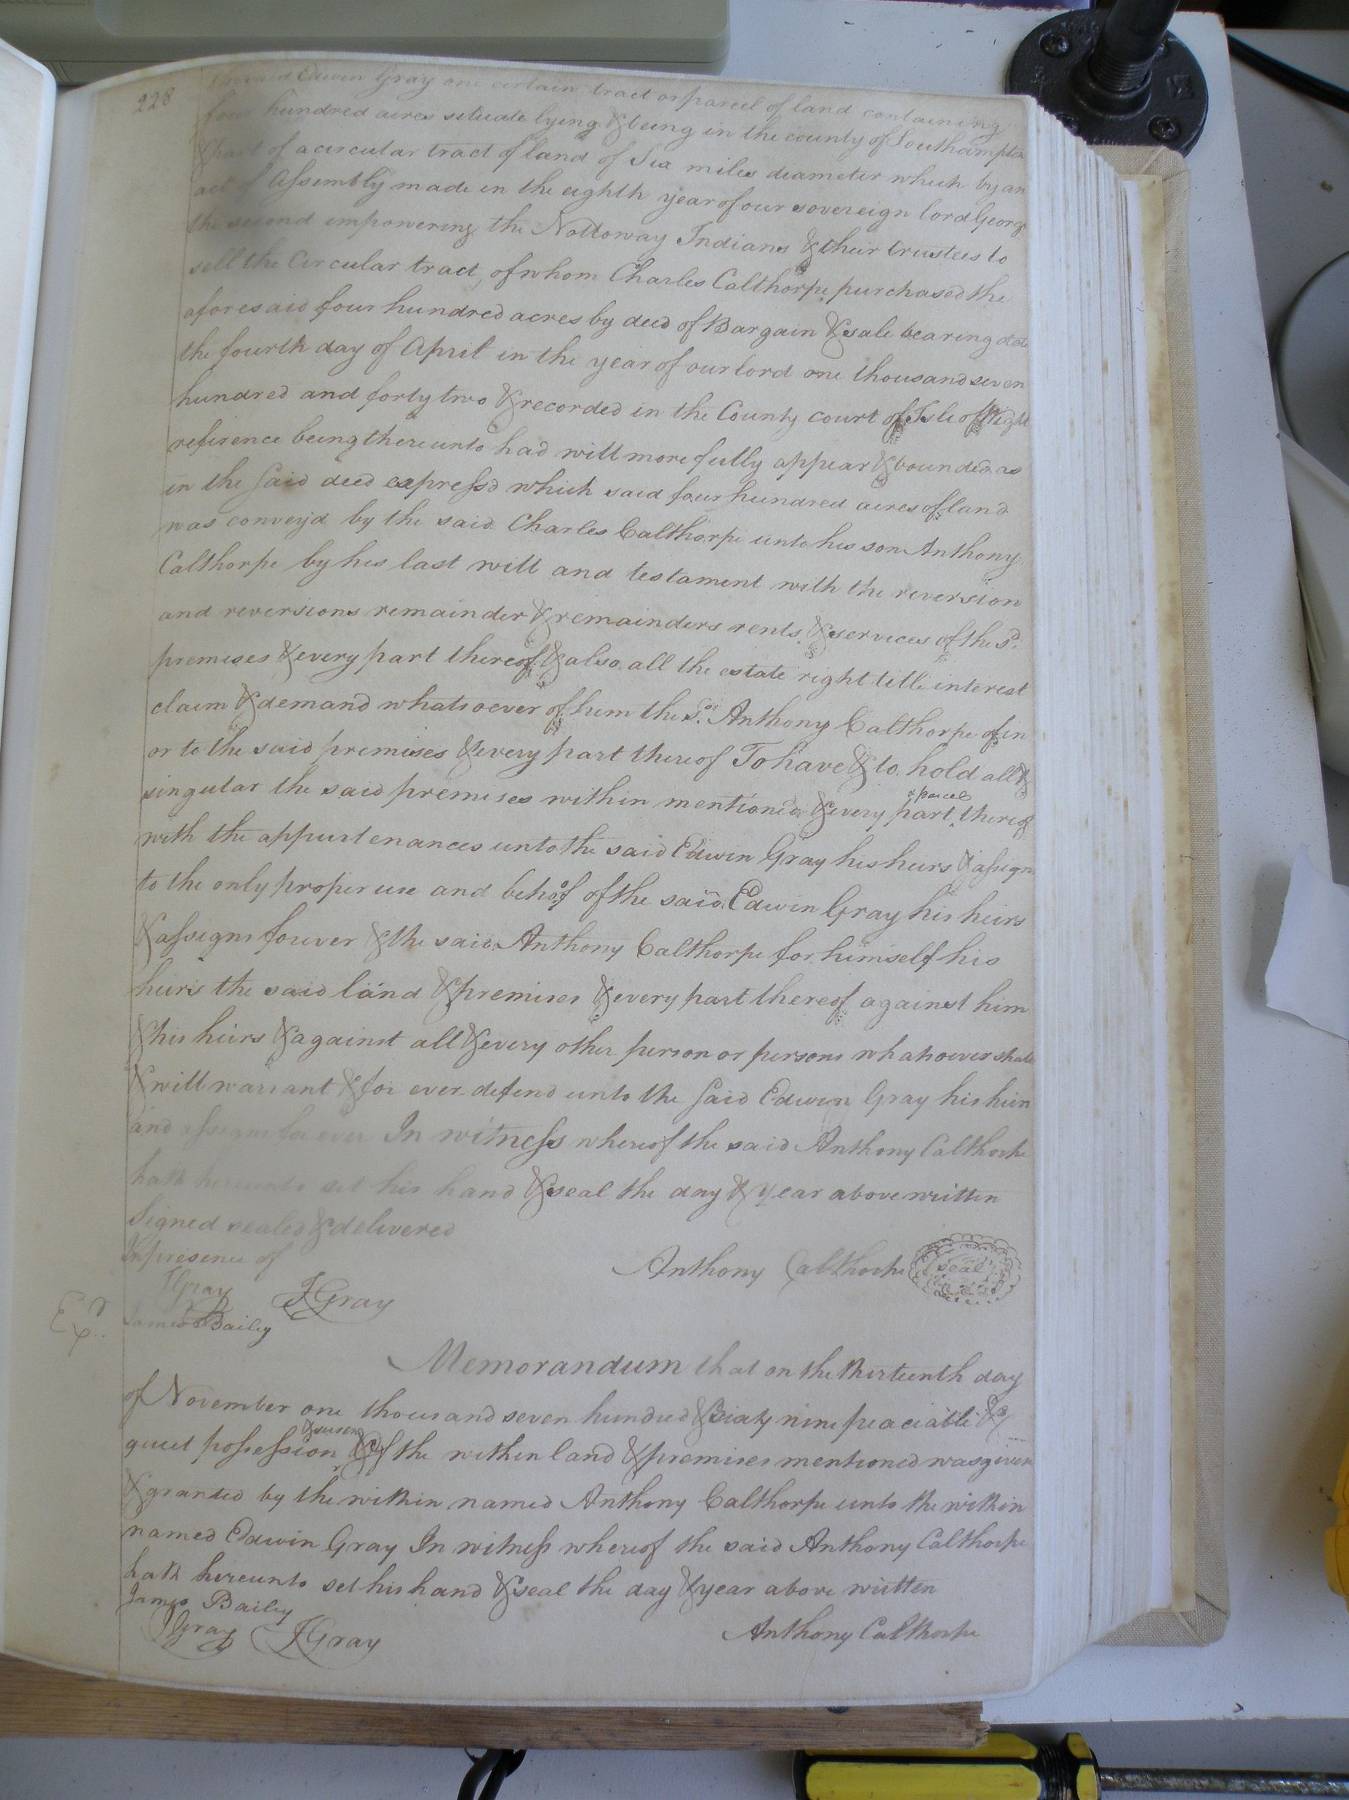 228
said Edwin Gray one certain tract or parcel of land containing
four hundred acres situate lying & being in the county of Southampton
& part of a circular tract of land of Six miles diameter which by an
act of Assembly made in the eighth year of our sovereign lord George
the second empowering the Nottoway Indians & their trustees to
sell the Circular tract, of whom Charles Calthorpe purchased the
aforesaid four hundred acres by deed of Bargain & sale bearing date
the fourth day of April in the year of our lord one thousand seven
hundred and forty two & recorded in the County court of Isle of Wight
reference being thereunto had will more fully appear & bounded as
in the said deed express'd which said four hundred acres of land
was convey'd by the said Charles Calthorpe unto his son Anthony
Calthorpe by his last will and testament with the reversion
and reversions remainder & remainders rents & services of the sd.
premises & every part thereof & also all the estate right title interest
claim & demand whatsoever of him the sd. Anthony Calthorpe of in
or to the said premises & every part thereof To have & to hold all &
singular the said premises within mentioned & every part & parcel thereof
with the appurtenances unto the said Edwin Gray his heirs & assigns
to the only proper use and behoof of the said Edwin Gray his heirs
& assigns forever & the said Anthony Calthorpe for himself his
heirs the said land & premises & every part thereof against him
& his heirs & against all & every other person or persons whatsoever shall
& will warrant & for ever defend unto the said Edwin Gray his heirs
and assigns for ever In witness whereof the said Anthony Calthorpe
hath hereunto set his hand & seal the day & year above written
Signed sealed & delivered
In presence of
Anthony Calthorpe seal
JGray JGray
James Bailey
Exd.
Memorandum that on the thirteenth day
of November one thousand seven hundred & Sixty nine peaciable &
quiet possession & seisen of the within land & premises mentioned was given
& granted by the within named Anthony Calthorpe unto the within
named Edwin Gray In witness whereof the said Anthony Calthorpe
hath hereunto set his hand & seal the day & year above written
James Bailey
JGray JGray Anthony Calthorpe